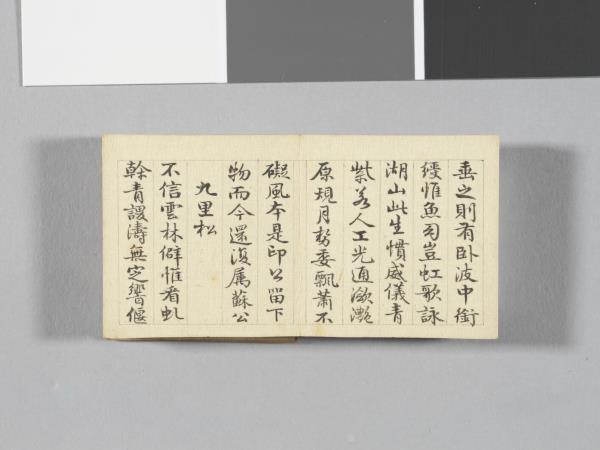 垂之則有卧波中銜
綬惟魚豈虹歌詠
湖山此生慣威儀青
紫羨人工光通瀲灔
原規月勢委飄蕭不
礙風本是印公留下
物而今還復屬蘇公
九里松
不信雲林僻惟看虬
幹青謖濤無定響偃